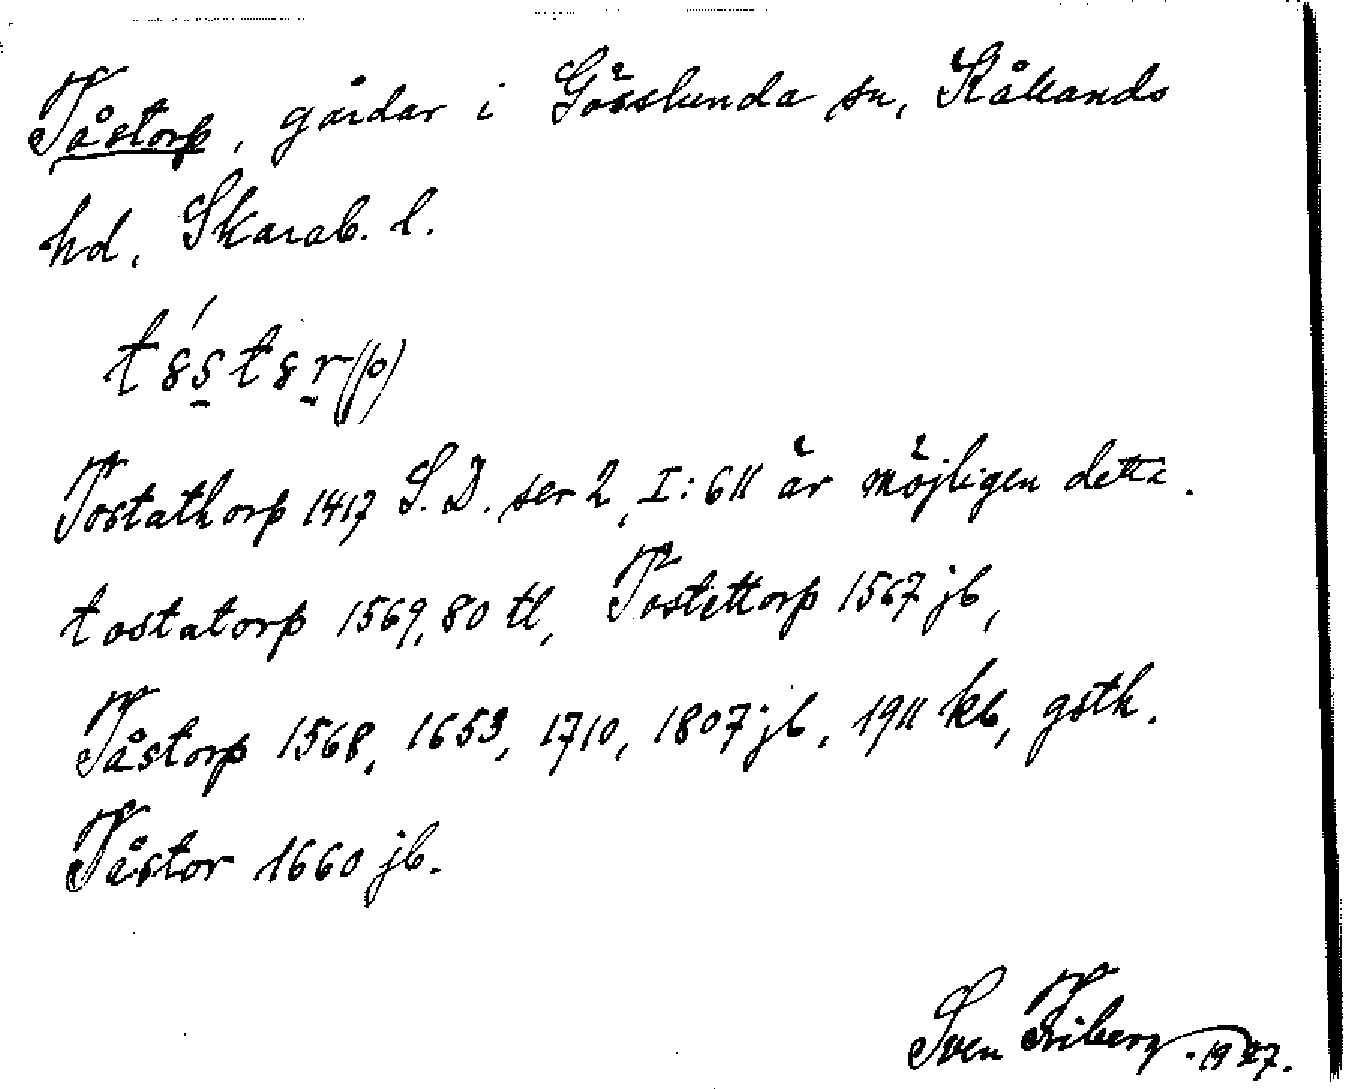 Tåstorp, gårdar i Gösslunda sn, Kållands
hd, Skarab. l.
Tostathorp 1417 S.D. ser 2, I: 611 är möjligen detta.
tostatorp 1569, 80 tl, Tostettorp 1567 jb,
Tåstorp 1568, 1653, 1710, 1807 jb, 1911 kb, gstk.
Tåstor 1660 jb.
Sven Friberg. 1927.